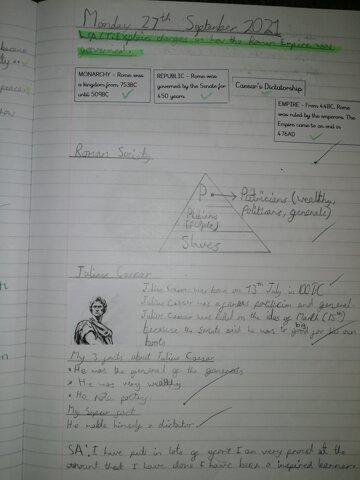 Monday 27th September 2021
LA: I can explain changes in how the Roman Empire was
governed.
MONARCHY - Rome was
a kingdom from 753BC
until 509BC
REPUBLIC - Rome was
governed by the Senate for
450 years.
Caesar's Dictatorship
EMPIRE - From 44BC, Rome
was ruled by the emperors. The
Empire came to an end in
476AD
Roman Society
P → Patricians (wealthy,
politians, generals)
Plebians
(people)
Slaves
Julius Caesar
Julius Caesar was born on 13th July in 100BC
Julius Caesar was a famous politician and general.
Julius Caesar was killed on the ides of March (15th)
because the Senate said he was to big for his own
boots
My 3 facts about Julius Caesar
• He was the general of the generals
• He was very wealthy
• He poetry
My Super fact
He made himself a dictator
SA: I have put in lots of effort I am very proud at the
amount that I have done & have been a inspired learner